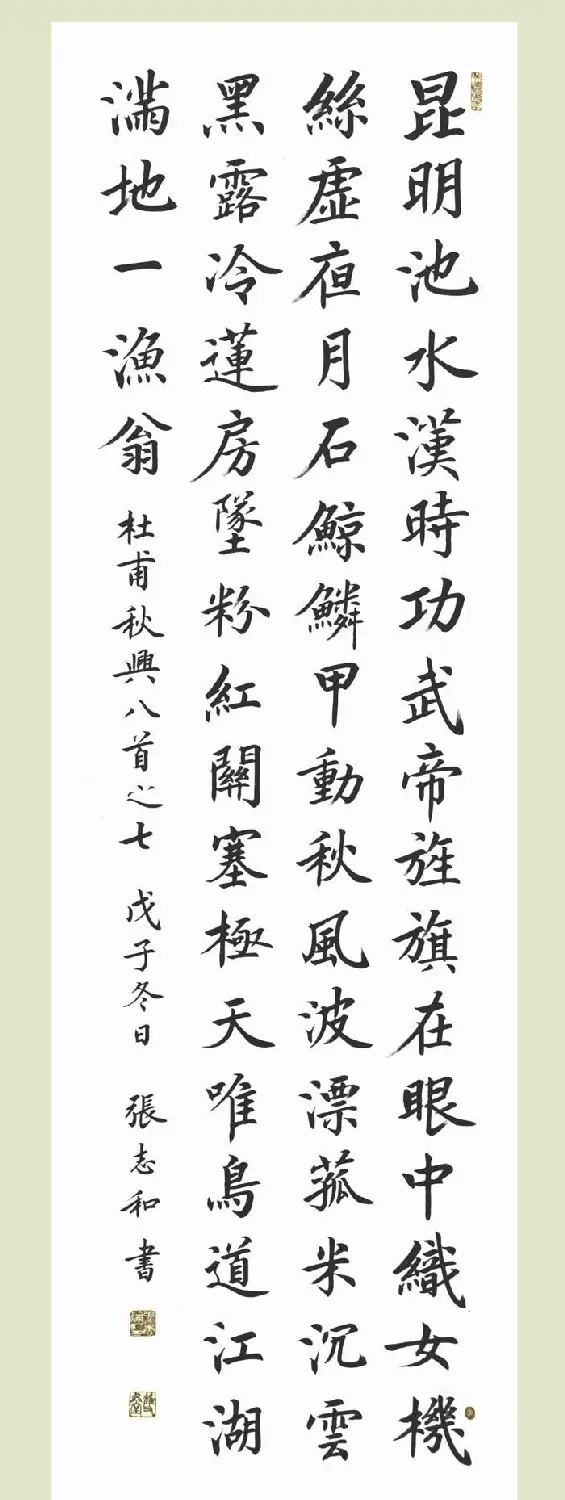 昆明池水漢時功武帝旌旗在眼中織女機
絲虛夜月石鯨鱗甲動秋風波漂菰米沉雲
黑露冷蓮房墜粉紅關塞極天唯鳥道江湖
滿地一漁翁
杜甫秋興八首之七 戊子冬日 張志和書